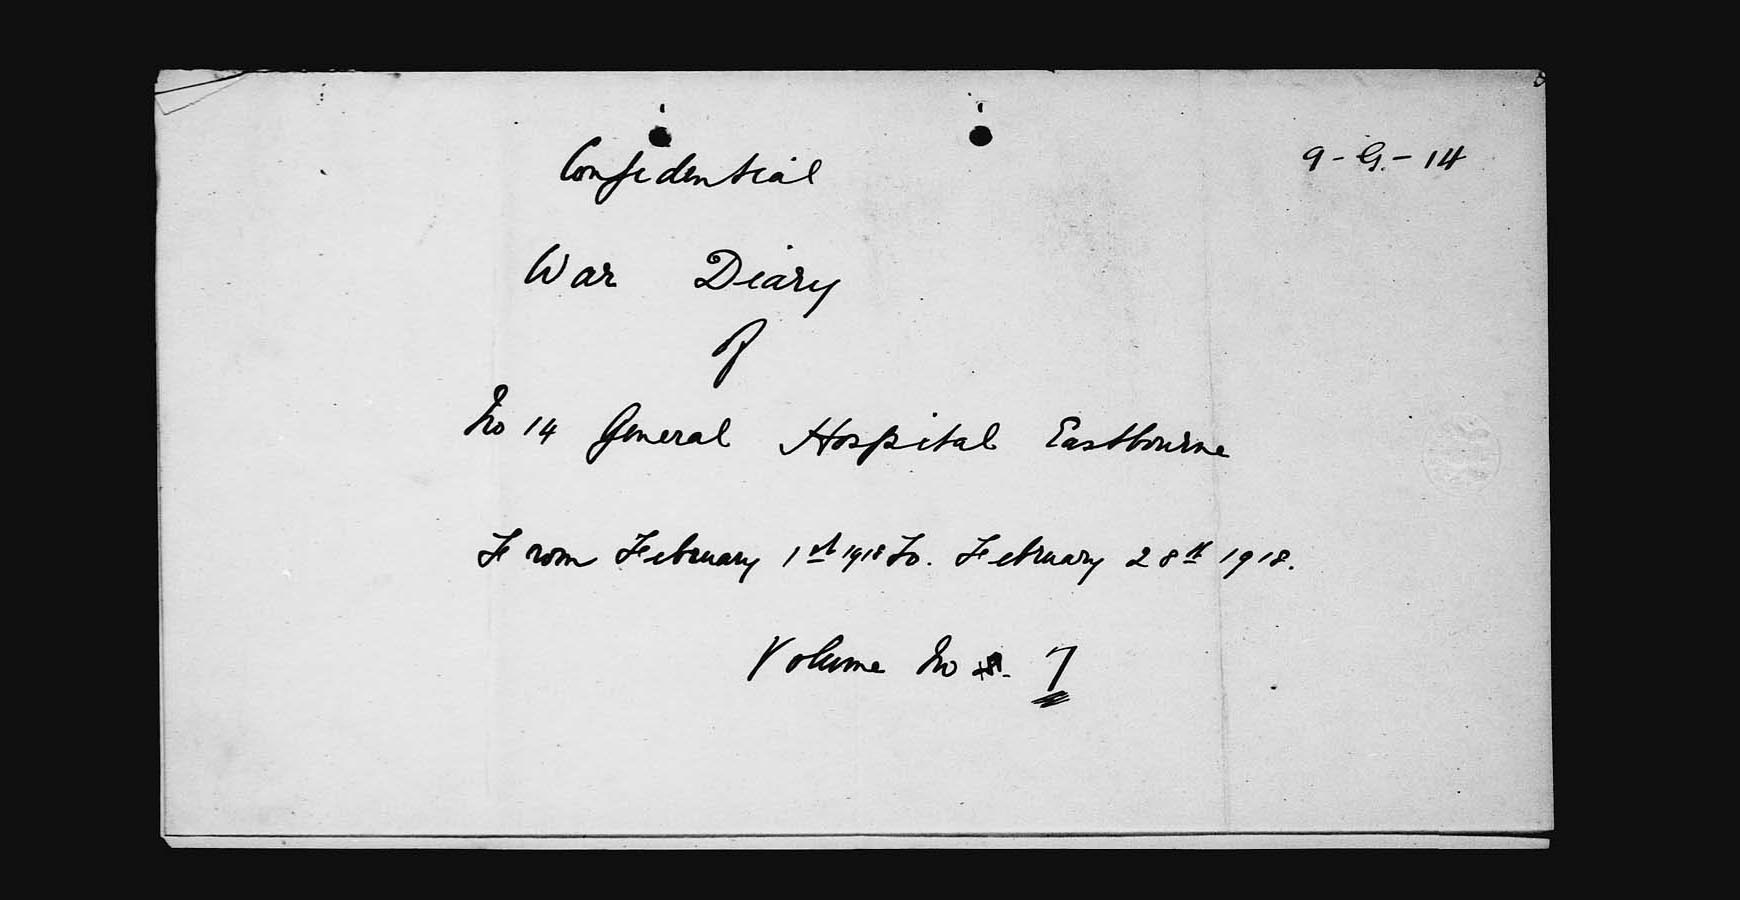 Confidential
9 - G. - 14
War Diary
of
No 14 General Hospital Eastbourne
From February 1st 1918 To. February 28th 1918.
Volume No 7